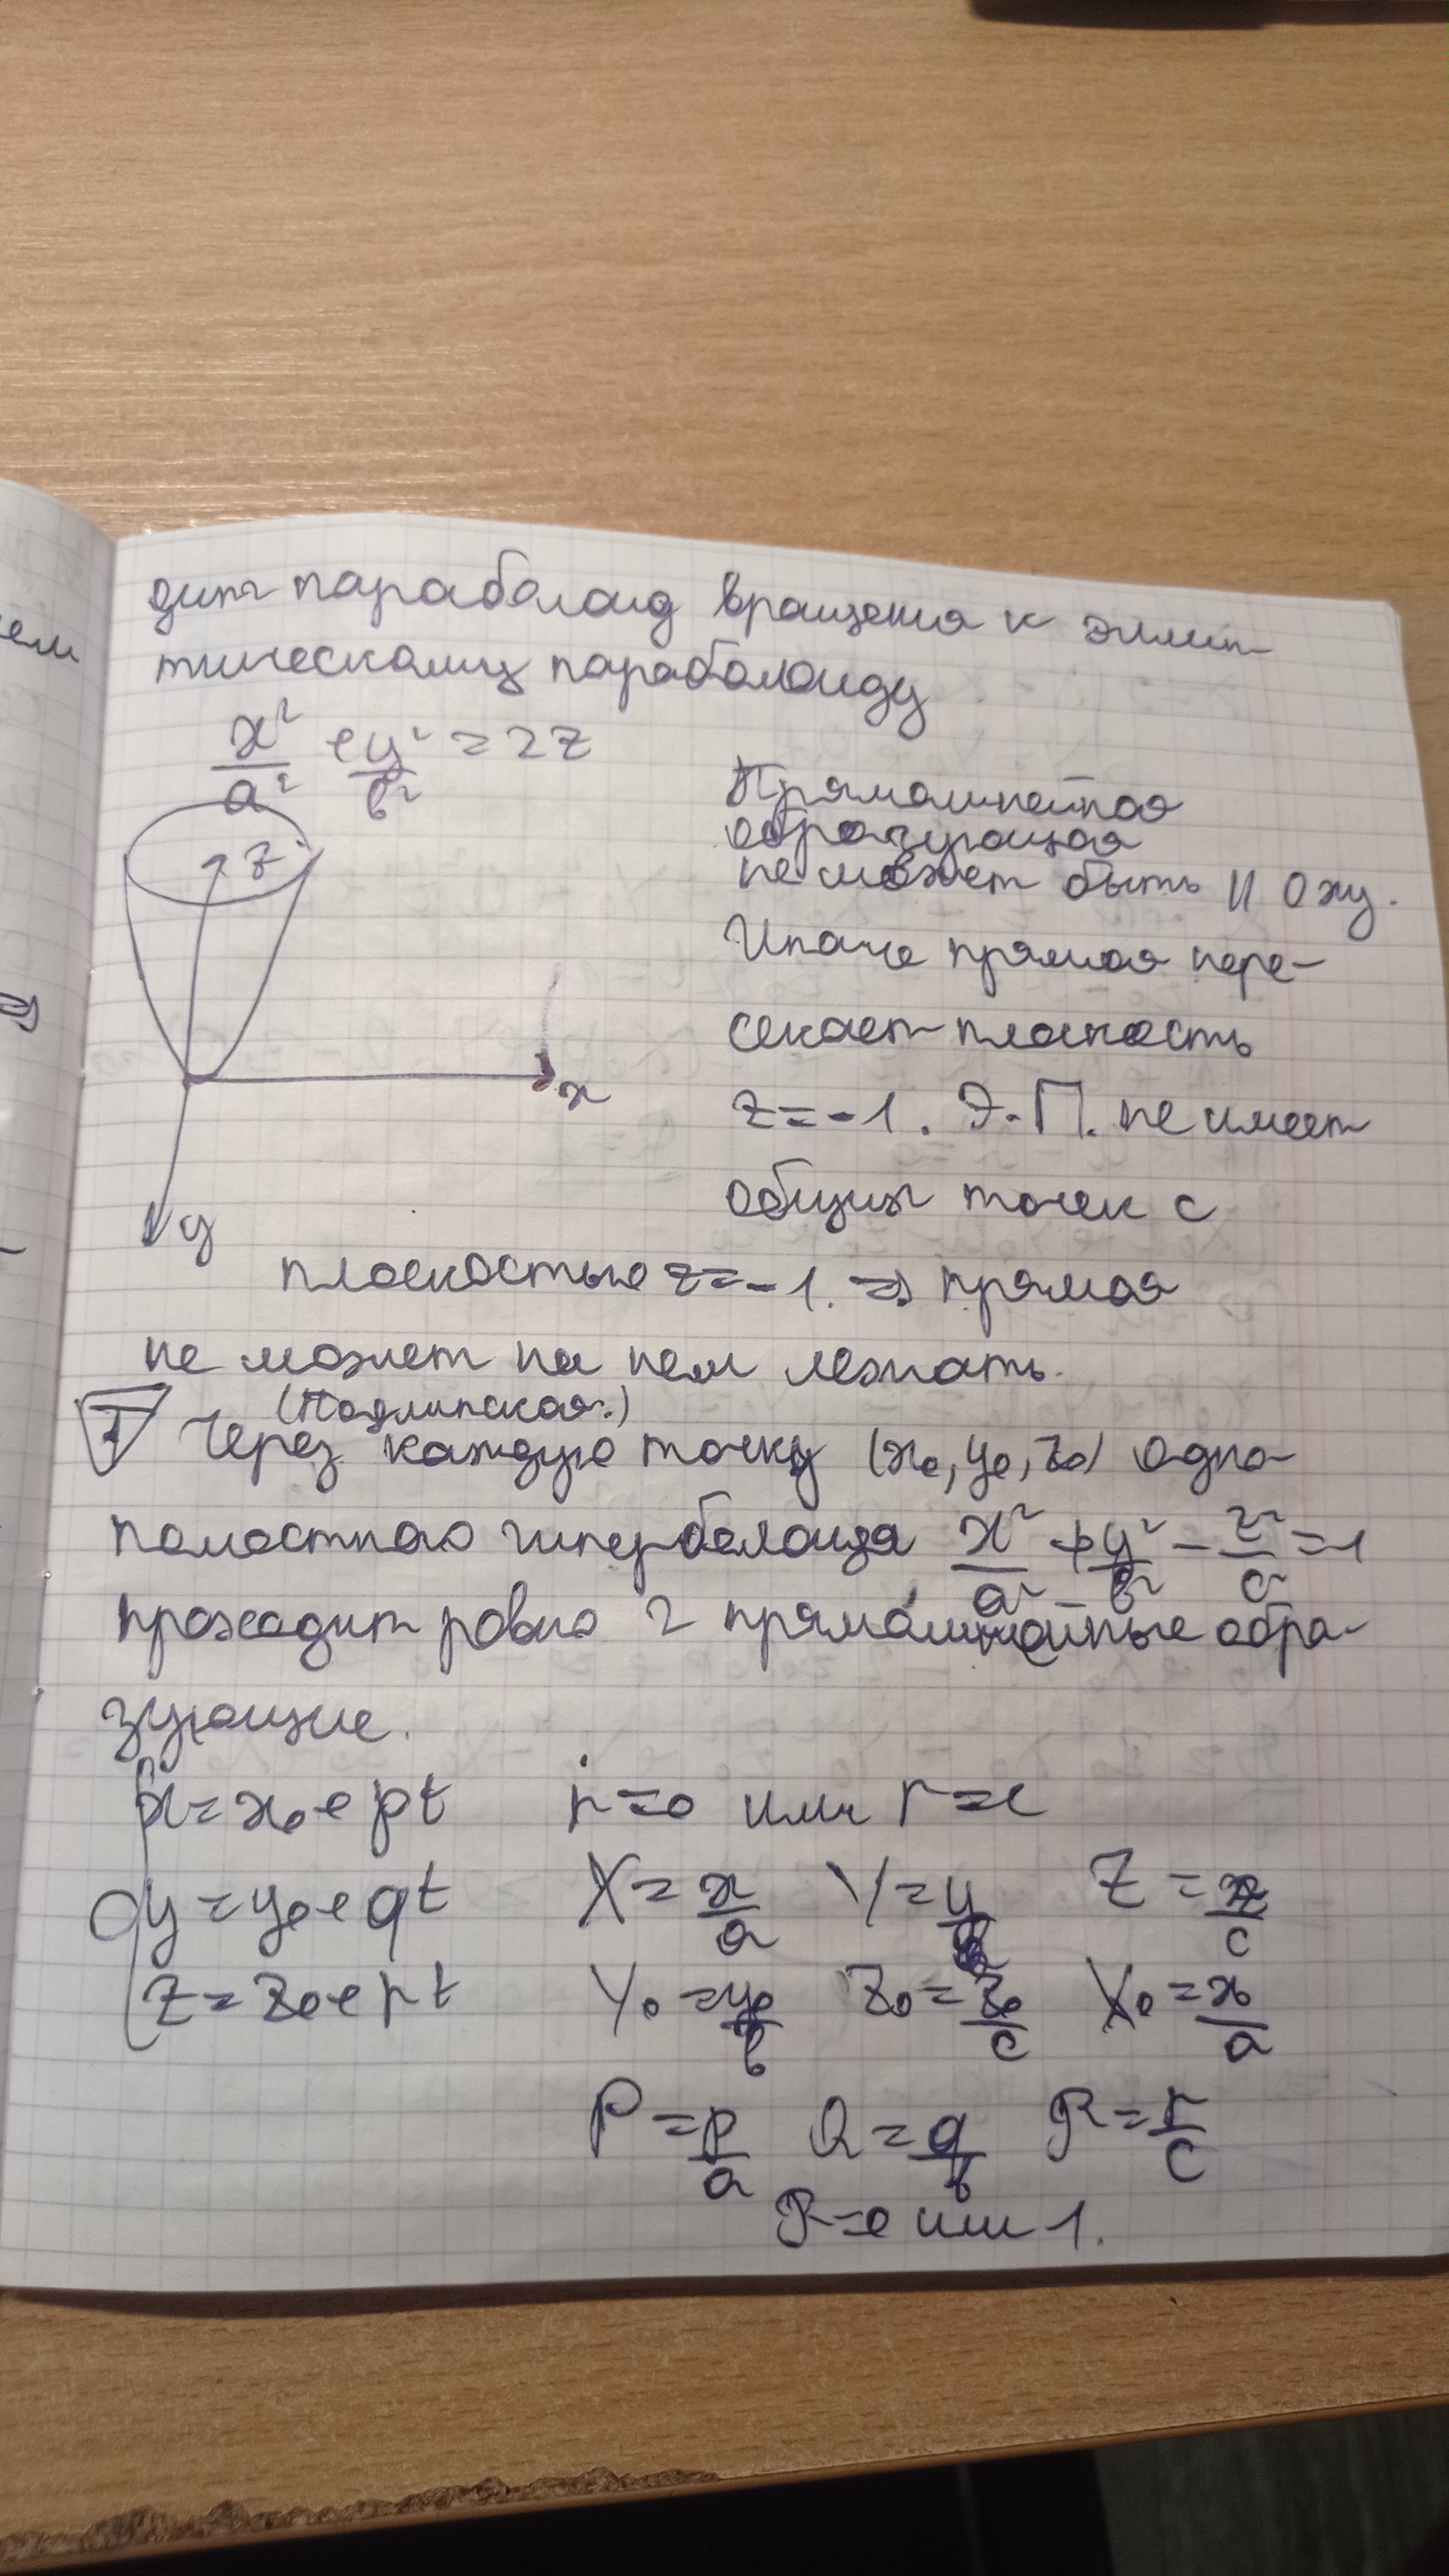 дит параболоид вращения к эллип-
тическому параболоиду
x²/a² + y²/b² = 2z
Прямолинейная
образующая
не может быть || Oxy.
Иначе прямая пере-
секает плоскость
z = -1. Э.П. не имеет
общих точек с
плоскостью z = -1. => прямая
не может на нем лежать.
z
x
y
Т (Подлипская.)
Через каждую точку (x₀, y₀, z₀) одно-
полостного гиперболоида x²/a² + y²/b² - z²/c² = 1
проходит ровно 2 прямолинейные обра-
зующие.
x = x₀ + pt r = 0 или r = c
y = y₀ + qt X = x/a Y = y/b Z = z/c
z = z₀ + rt Y₀ = y₀/b Z₀ = z₀/c X₀ = x₀/a
P = p/a Q = q/b R = r/c
R = 0 или 1.